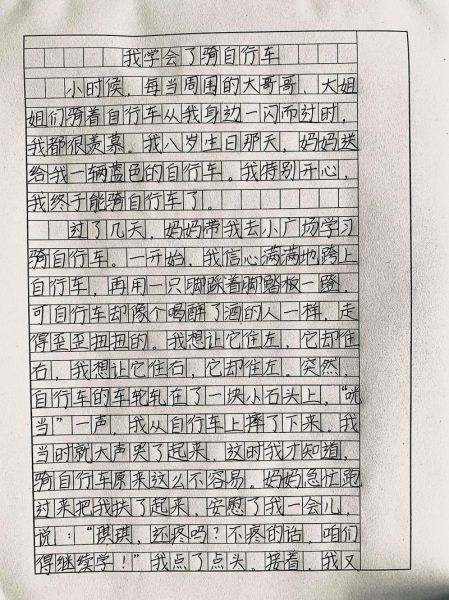 我学会了骑自行车
小时候，每当周围的大哥哥、大姐
姐们骑着自行车从我身边一闪而过时，
我都很羡慕。我八岁生日那天，妈妈送
给我一辆蓝色的自行车。我特别开心，
我终于能骑自行车了。
过了几天，妈妈带我去小广场学习
骑自行车。一开始，我信心满满地跨上
自行车，再用一只脚踩着脚踏板一蹬，
可自行车却像个喝醉了酒的人一样，走
得歪歪扭扭的。我想让它往左，它却往
右，我想让它往右，它却往左。突然，
自行车的车轮轧在了一块小石头上，“咣
当”一声，我从自行车上摔了下来。我
当时就大声哭了起来，这时我才知道，
骑自行车原来这么不容易。妈妈急忙跑
过来把我扶了起来，安慰了我一会儿，
说：“琪琪，还疼吗？不疼的话，咱们
得继续学！”我点了点头。接着，我又